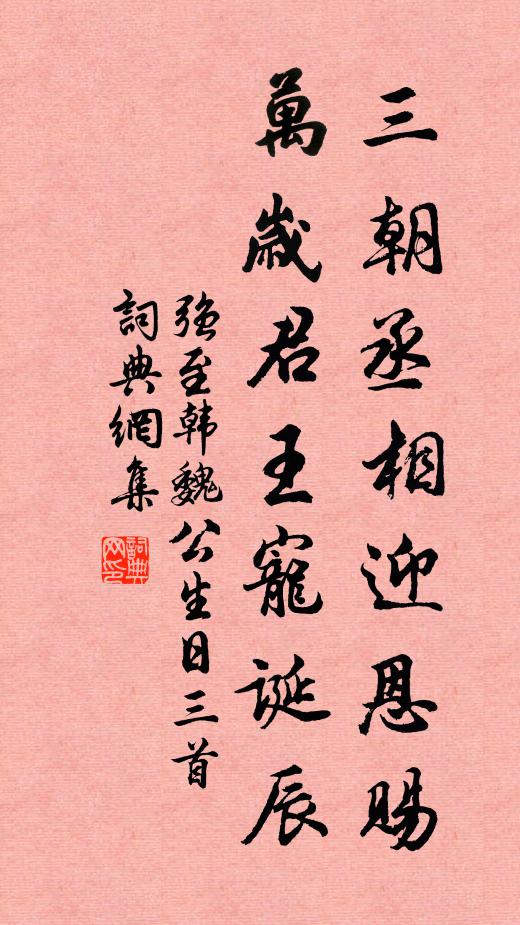 三朝丞相迎恩賜
萬歲君王寵誕辰
強至韩魏公生日三首
詞典網集
詞典网印